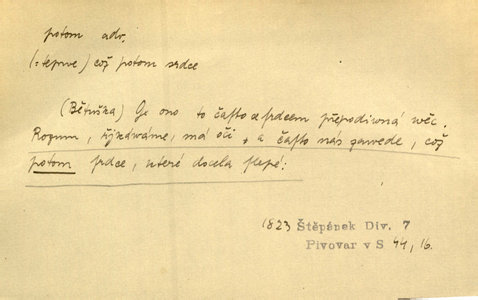 potom adv.
(= teprve) což potom srdce
(Bětuška) Je ono to často se srdcem přepodivná věc.
Rozum, říkáváme, má oči, a často nás zavede, což
potom srdce, které docela slepé!
1823 Štěpánek Div. 7
Pivovar v S 44, 16.